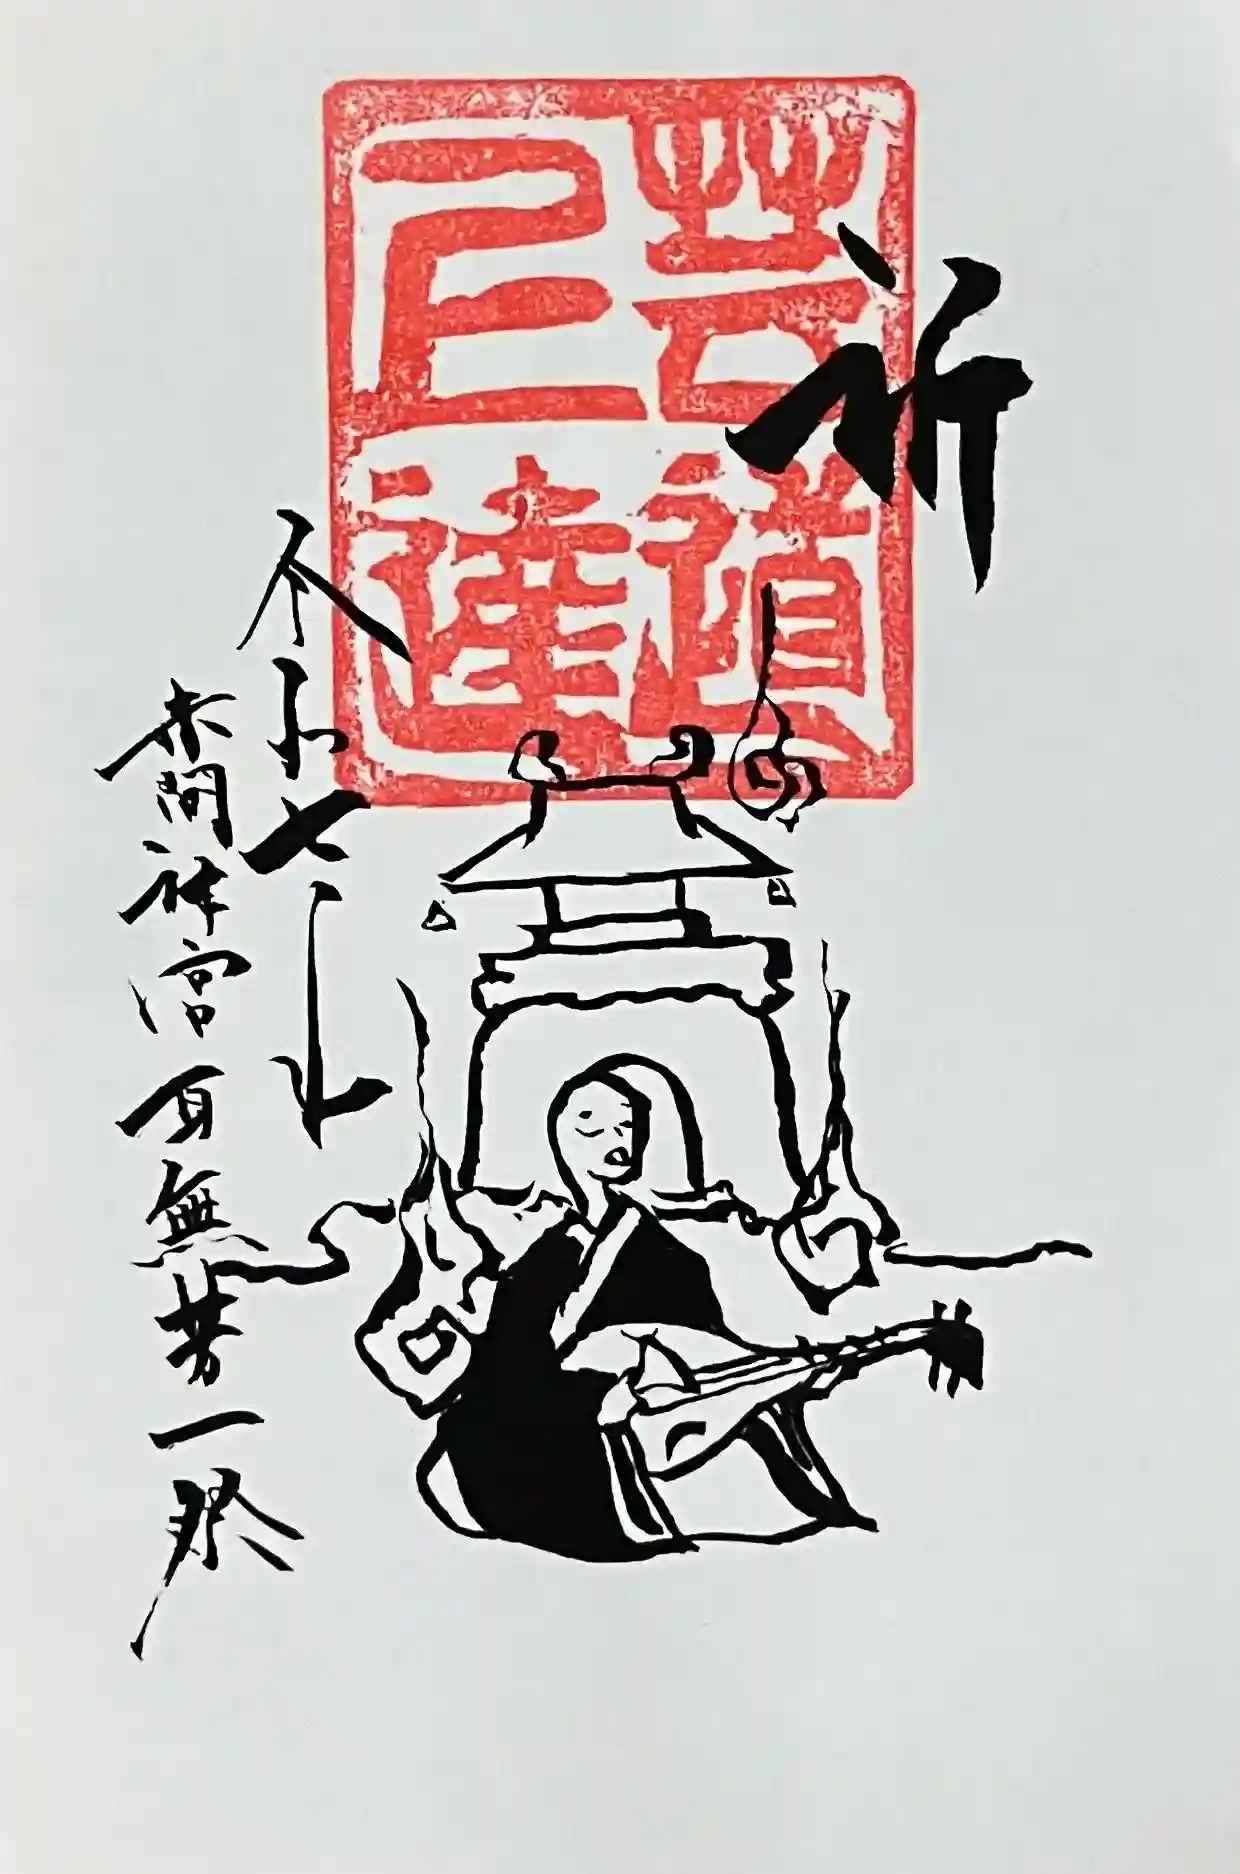 祈
芸道
上達
令和七年
赤間神宮 耳無芳一